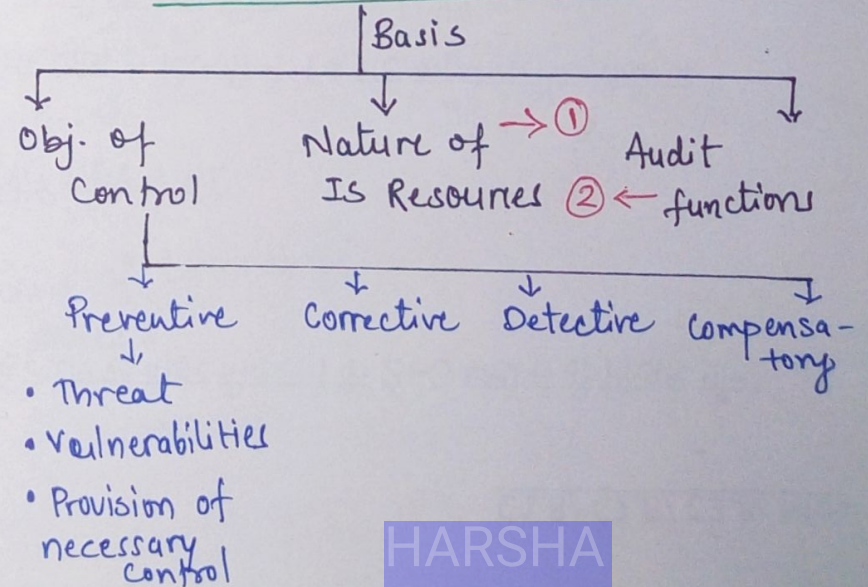 Basis
Obj. of
Control
Nature of → ①
IS Resources
Audit
② ← functions
Preventive
Corrective
Detective
Compensa-
tory
• Threat
• Vulnerabilities
• Provision of
necessary
control
HARSHA